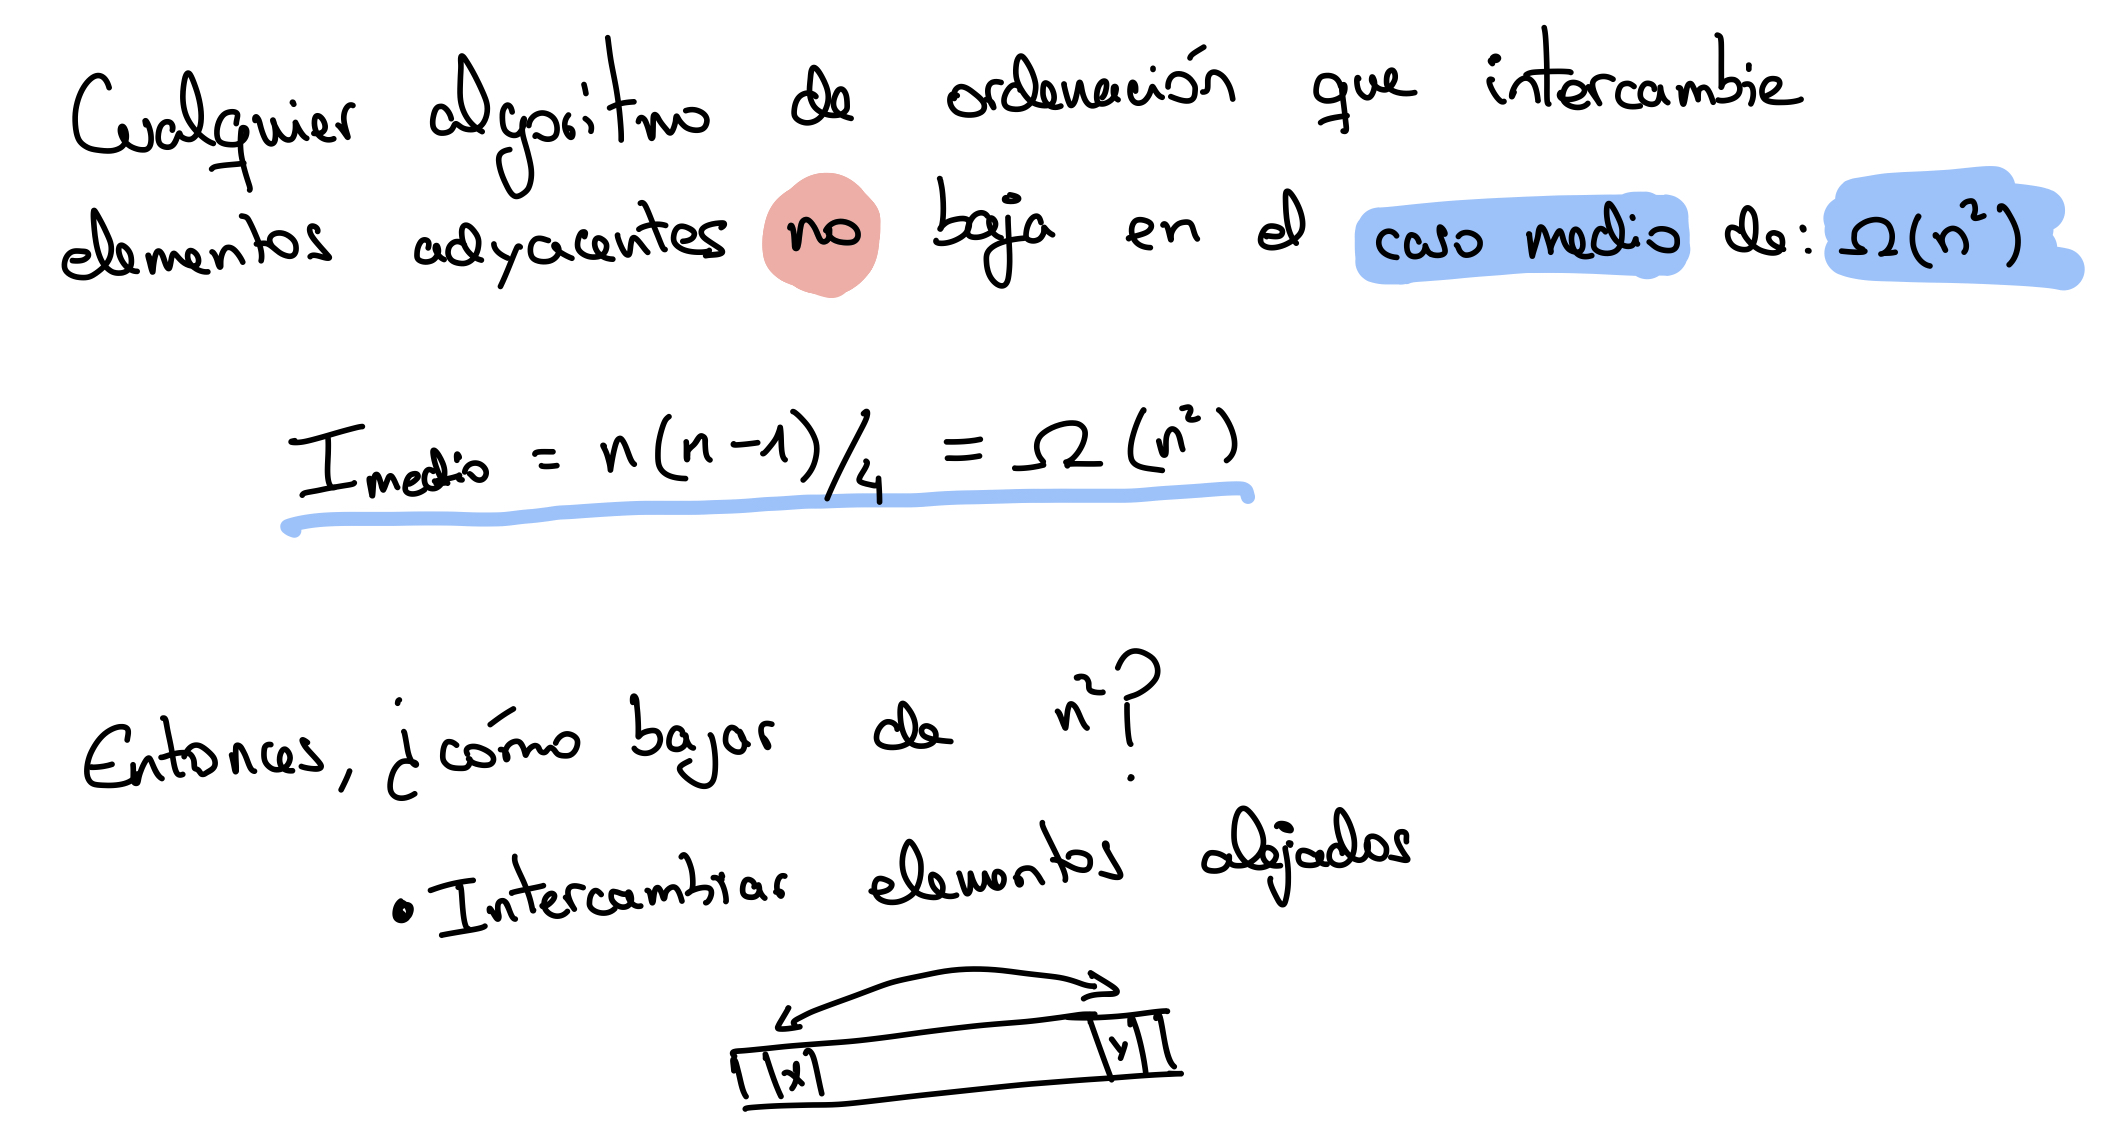 Cualquier algoritmo de ordenación que intercambie
elementos adyacentes no baja en el caso medio de: Ω(n²)
I medio = n(n-1)/4 = Ω(n²)
Entonces, ¿cómo bajar de n²?
• Intercambiar elementos alejados
x y